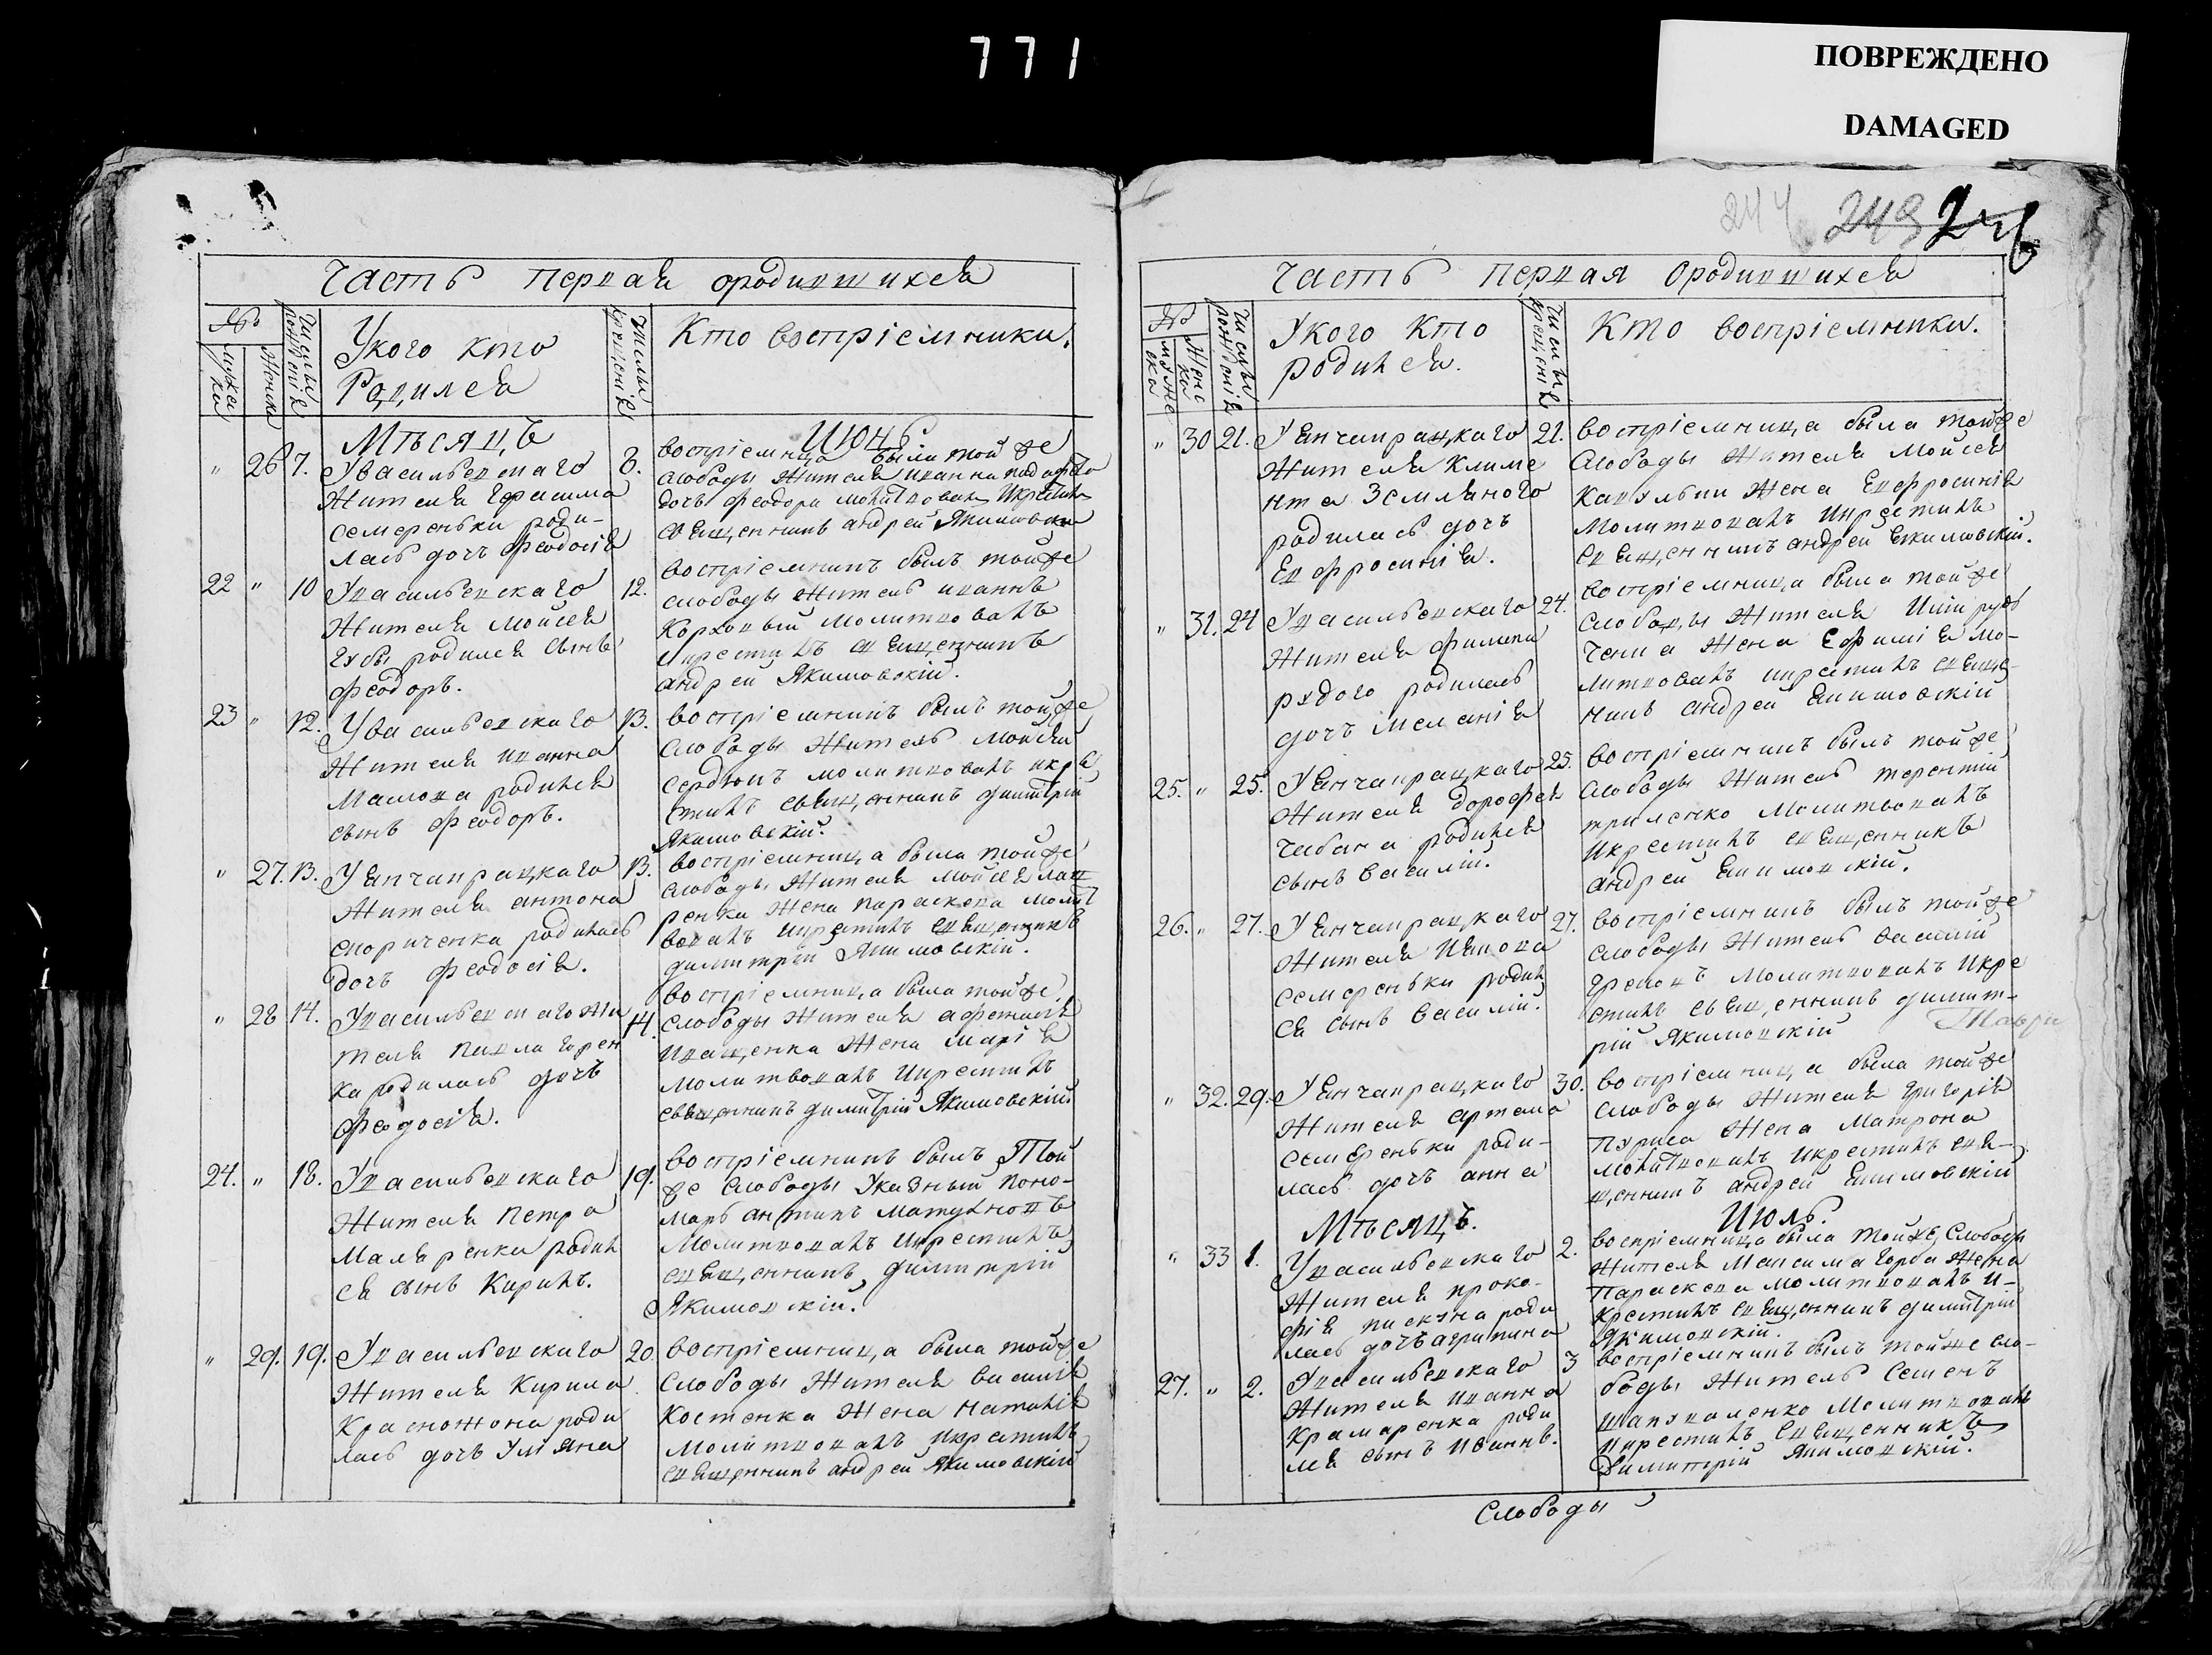 771
ПОВРЕЖДЕНО
DAMAGED
244 249
Часть первая ородившихся
№
мужска
женска
Числы рожденія
У кого кто
Родился
Числы крещенія
Кто воспріемники.
Мѣсяцъ
Июнь
" 26 7. У васильевскаго 8.
Жителя Ефасима
семереньки роди-
лась дочь феодосія
воспріемница была той же
слободы Жителя иванна
дочь феодора молитвовалъ Икрестилъ
священникъ андрей Якимовскій
22 " 10 Увасильевскаго 12.
Жителя Мойсея
Губы родился сынъ
феодоръ.
воспріемникъ былъ тойже
слободы Житель иваннъ
Коржовый молитвовалъ
Икрестилъ священникъ
андрей Якимовскій.
23 " 12. Увасильевскаго 13.
Жителя иванна
Мамона родился
сынъ феодоръ.
воспріемникъ былъ тойже
слободы Житель мойсей
сердюкъ молитвовалъ икре
стилъ священникъ димитрій
Якимовскій.
" 27. 13. У Янчапрацкаго 13.
Жителя антона
скориченка родилась
дочь феодосія.
воспріемница была тойже
слободы Жителя мойсея лав
ренка Жена параскева молит
вовалъ икрестилъ священникъ
димитрій Якимовскій.
" 28 14. Увасильевскаго Жи 14.
теля павла горен
ка родилась дочь
феодосія.
воспріемница была тойже
слободы Жителя афанасія
Иващенка Жена Марія
молитвовалъ Икрестилъ
священникъ димитрій Якимовскій.
24. " 18. Увасильевскаго 19.
Жителя петра
Маляренки родил
ся сынъ Кирилъ.
воспріемникъ былъ Той
же слободы Указный поно-
марь антипъ матушновъ
Молитвовалъ Икрестилъ
священникъ димитрій
Якимовскій.
" 29. 19. Увасильевскаго 20
Жителя Кирила
Красножона роди
лась дочь Улияна
воспріемница была тойже
Слободы Жителя василія
Костенка Жена наталія
молитвовалъ икрестилъ
священникъ андрей Якимовскій
Часть первая Ородившихся
№
мужеска
Женска
Числы рожденія
У кого кто
родился.
Числы крещенія
Кто воспріемники.
" 30 21. У Янчапрацкаго 21.
Жителя Климе
нта Земляного
родилась дочь
Евфросинія.
воспріемница была тойже
слободы Жителя Мойсея
Жена Евфросинія
Молитвовалъ икрестилъ
священникъ андрей Якимовскій.
" 31. 24 Увасильевскаго 24.
Жителя филипа
рудого родилась
дочь меланія
воспріемница была тойже
слободы Жителя
Жена Ефимія мо-
литвовалъ икрестилъ священ-
никъ андрей Якимовскій
25. " 25. У Янчапрацкаго 25.
Жителя дорофея
Чабана родился
сынъ василій.
воспріемникъ былъ тойже
слободы Житель терентій
триленко Молитвовалъ
Икрестилъ священникъ
андрей Якимовскій.
26. " 27. У Янчапрацкаго 27.
Жителя Иякова
семереньки родил
ся сынъ василій.
воспріемникъ былъ тойже
слободы Житель василій
Грековъ Молитвовалъ Икре
стилъ священникъ димит-
рій Якимовскій
" 32. 29. У Янчапрацкаго 30.
Жителя артема
семереньки роди-
лась дочь анна
воспріемница была тойже
слободы Жителя Григорія
пуриса Жена Матрона
молитвовалъ Икрестилъ свя-
щенникъ андрей Якимовскій
Мѣсяцъ.
Июль.
" 33 1. Увасильевскаго 2.
Жителя проко-
фія пискуна роди
лась дочь агрипина
воспріемница была тойже слободы
Жителя Максима горба Жена
Параскева молитвовалъ и-
крестилъ священникъ димитрій
Якимовскій.
27. " 2. Увасильевскаго 3
Жителя иванна
Крамаренка роди
лся сынъ Иваннъ.
воспріемникъ былъ тойже сло-
боды Житель семенъ
шаповаленко Молитвовалъ
Икрестилъ священникъ
Димитрій Якимовскій.
Слободы